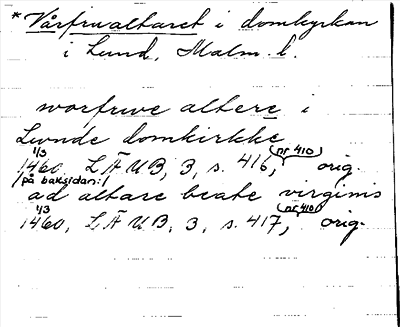 * Vårfrualtaret i domkyrkan
i Lund, Malm. l.
worfrwe altere i
Lwnde domkirkke
1/3 1460. LÄUB, 3, s. 416, (nr 410) orig.
/på baksidan:/
ad altare beate virginis
1/3 1460, LÄUB, 3, s. 417, (nr 410) orig.